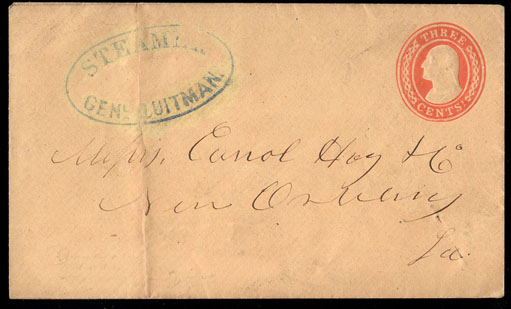 STEAMER
GENL. QUITMAN.
THREE
CENTS
Messrs. Carrol Hoy & Co
New Orleans
La.